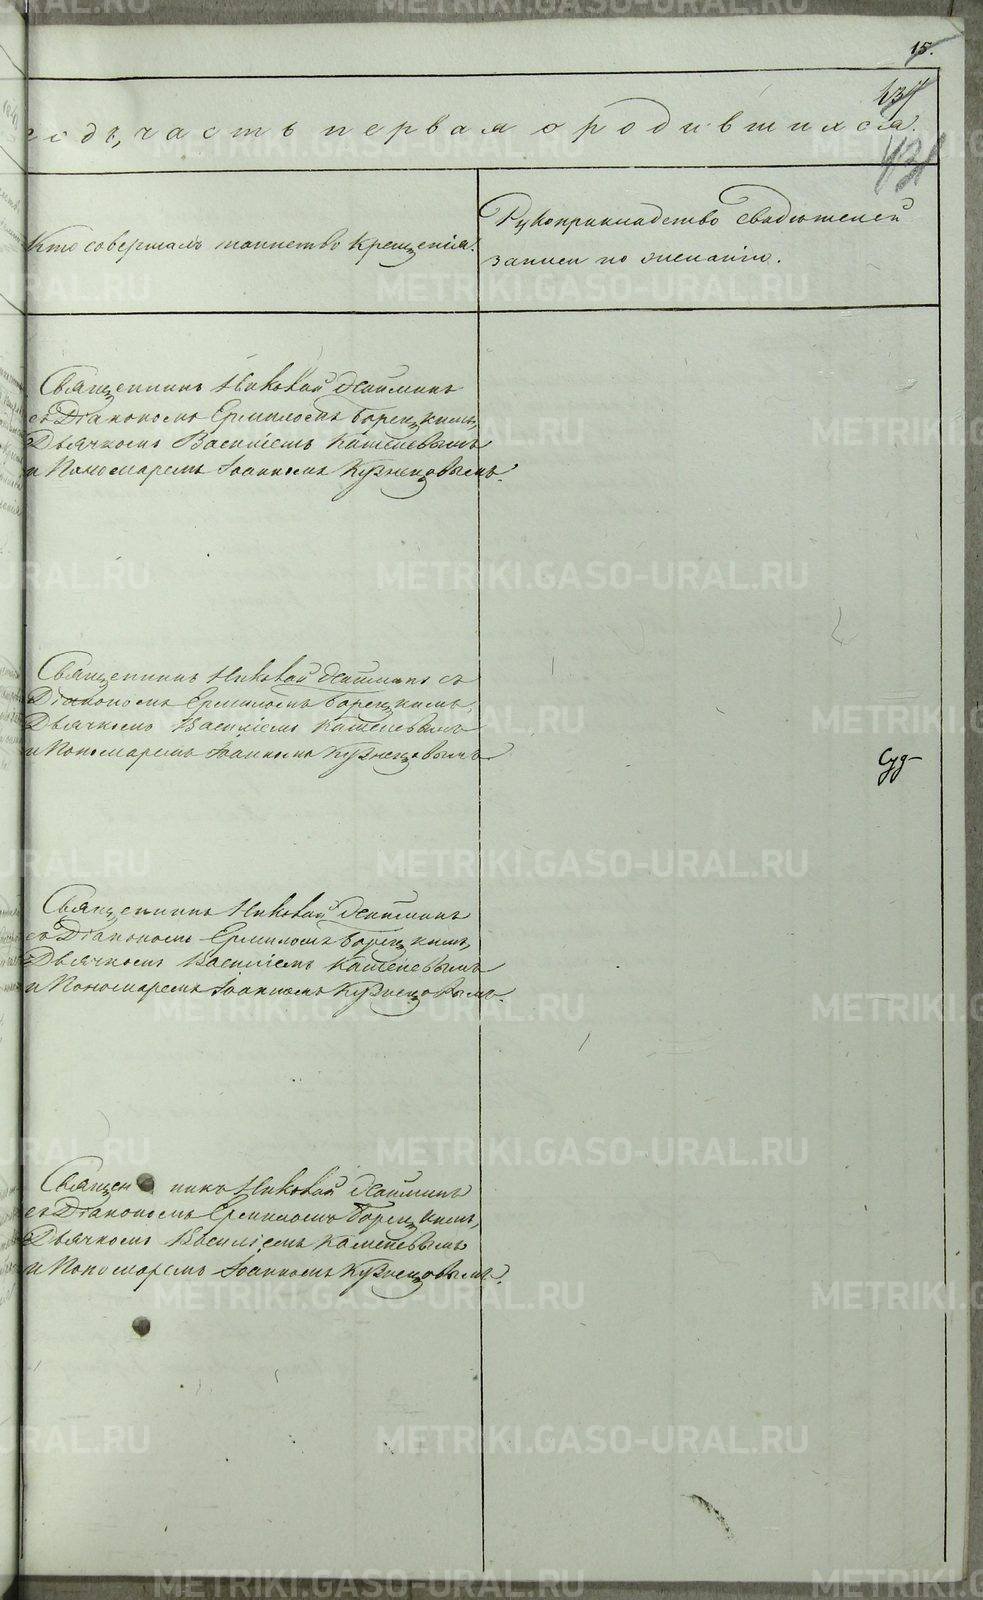 15.
годъ, часть первая о родившихся.
Кто совершалъ таинство крещенія.
Рукоприкладство свидѣтелей
записи по желанію.
Священникъ Николай
съ Діакономъ Ермиломъ
Дьячкомъ Василіемъ Каменевымъ
и Пономаремъ Іоанномъ Кузнецовымъ.
Священникъ Николай съ
Діакономъ Ермиломъ
Дьячкомъ Василіемъ Каменевымъ
и Пономаремъ Іоанномъ Кузнецовымъ
Суд-
Священникъ Николай
съ Діакономъ Ермиломъ
Дьячкомъ Василіемъ Каменевымъ
и Пономаремъ Іоанномъ Кузнецовымъ.
Священникъ Николай
съ Діакономъ Ермиломъ
Дьячкомъ Василіемъ Каменевымъ
и Пономаремъ Іоанномъ Кузнецовымъ.
METRIKI.GASO-URAL.RU